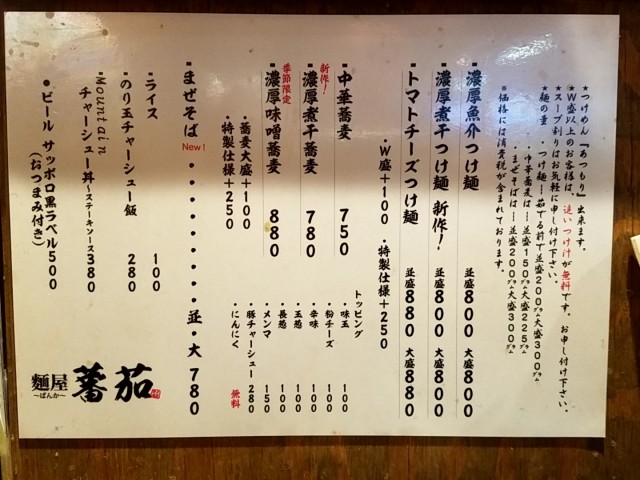 ★つけめん『あつもり』出来ます。
★W盛以上のお客様は、追いつけ汁が無料です。お申し付け下さい。
★スープ割りはお気軽に申し付け下さい。
★麺の量・つけ麺…茹でる前で並盛200㌘大盛300㌘
・中華蕎麦は…並盛150㌘大盛225㌘
・まぜそばは…並盛200㌘大盛300㌘
*価格には消費税が含まれております。
・濃厚魚介つけ麺 並盛880 大盛880
・濃厚煮干つけ麺 新作! 並盛800 大盛880
・トマトチーズつけ麺 並盛880 大盛880
・W盛+100 ・特製仕様+250
・中華蕎麦 750
新作!
・濃厚煮干蕎麦 780
季節限定
・濃厚味噌蕎麦 880
・蕎麦大盛+100
・特製仕様+250
トッピング
・味玉 100
・粉チーズ 100
・辛味 100
・玉葱 100
・長葱 100
・メンマ 150
・豚チャーシュー 280
・にんにく 無料
・まぜそば New! ・・・・・・・・並・大 780
・ライス 100
・のり玉チャーシュー飯 280
・Mountain
チャーシュー丼~ステーキソース380
・ビール サッポロ黒ラベル500
(おつまみ付き)
麺屋
~ばんか~
蕃茄